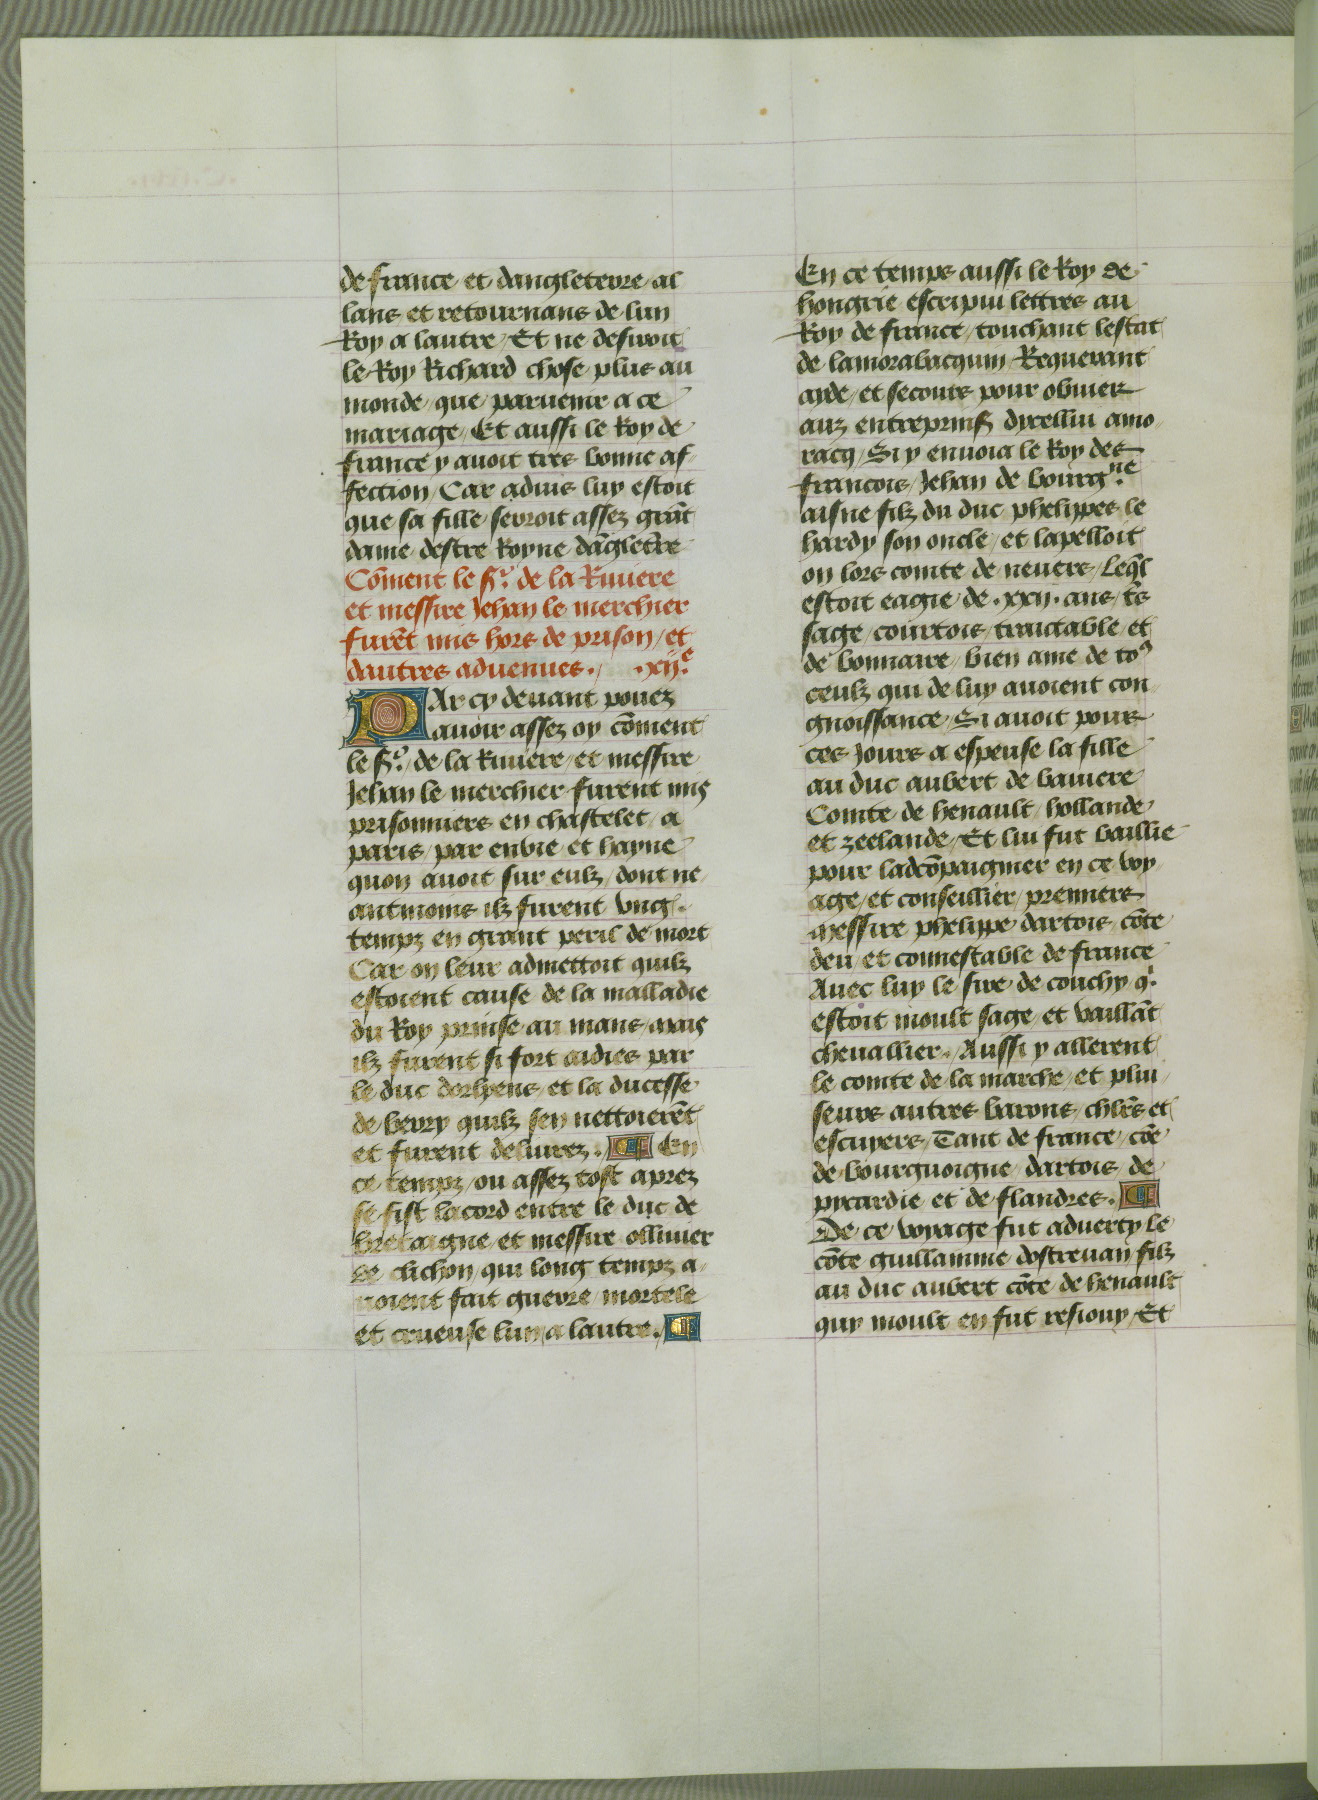 de france et dangleterre al
lans et retournans de lun
Roy a lautre / Et ne desiroit
le Roy Richard chose plus au
monde que paruenir a ce
mariage / Et aussi le Roy de
france y auoit tres bonne af-
fection / Car aduis luy estoit
que sa fille seroit assez grāt
dame destre Royne dāgletēre
Cōment le sr. de la Riuiere
et messire Jehan le merchier
furēt mis hors de prison / et
dautres aduenues. / .xije.
PAr cy deuant pouez
auoir assez oy cōment
le sr. / de la Riuiere / et messire
Jehan le merchier furent mis
prisonniers en chastelet / a
paris / par enuie et hayne
quon auoit sur eulz / dont ne
antmoins ilz furent vng
tempz en grant peril de mort
Car on leur admettoit quilz
estoient cause de la malladie
du Roy prinse au mans / mais
ilz furent si fort aidies par
le duc dorlyens / et la ducesse
de berry quilz sen nettoierēt
et furent deliurez. / En
ce tempz / ou assez tost aprez
se fist lacord entre le duc de
bretaigne / et messire ollinier
de clichon / qui long tempz a-
uoient fait guerre mortele
et crueuse lun / a lautre. /
En ce temps aussi le Roy de
hongrie escripui lettres au
Roy de france / touchant lestat
de lamorabacquin / Requerant
ayde / et secours pour obuier
auz entreprinses dicellui amo-
racq / Si y enuoia le Roy des
francois / Jehan de bourgne.
aisne filz du duc phelippes le
hardy son oncle / et lapelloit
on lors comte de neuers / Leql
estoit eagie de .xxij. ans / trs
sage / courtois / traictable / et
de bonnaire / bien ame de to9
ceulz qui de luy auoient con-
gnoissance / Si auoit pour
ces jours a espeuse la fille
au duc aubert de bauiere
Comte de henault / hollande
et zeelande / Et lui fut baillie
pour ladcōpaignier en ce voy-
age / et conseillier / premiers
messire phelippe dartois / cōte
deu / et connestable de france
Auec luy le sire de couchy q.
estoit moult sage / et vaillāt
cheuallier. / Aussi y allerent
le comte de la marche / et plui-
seurs autres barons / chlrs et
escuyers / Tant de france / cōe
de bourguoigne / dartois / de
picardie et de flandres.
De ce voyage fut aduerty le
cōte guillamme dostreuan filz
au duc aubert cōte de henault
quy moult en fut resiouy / Et